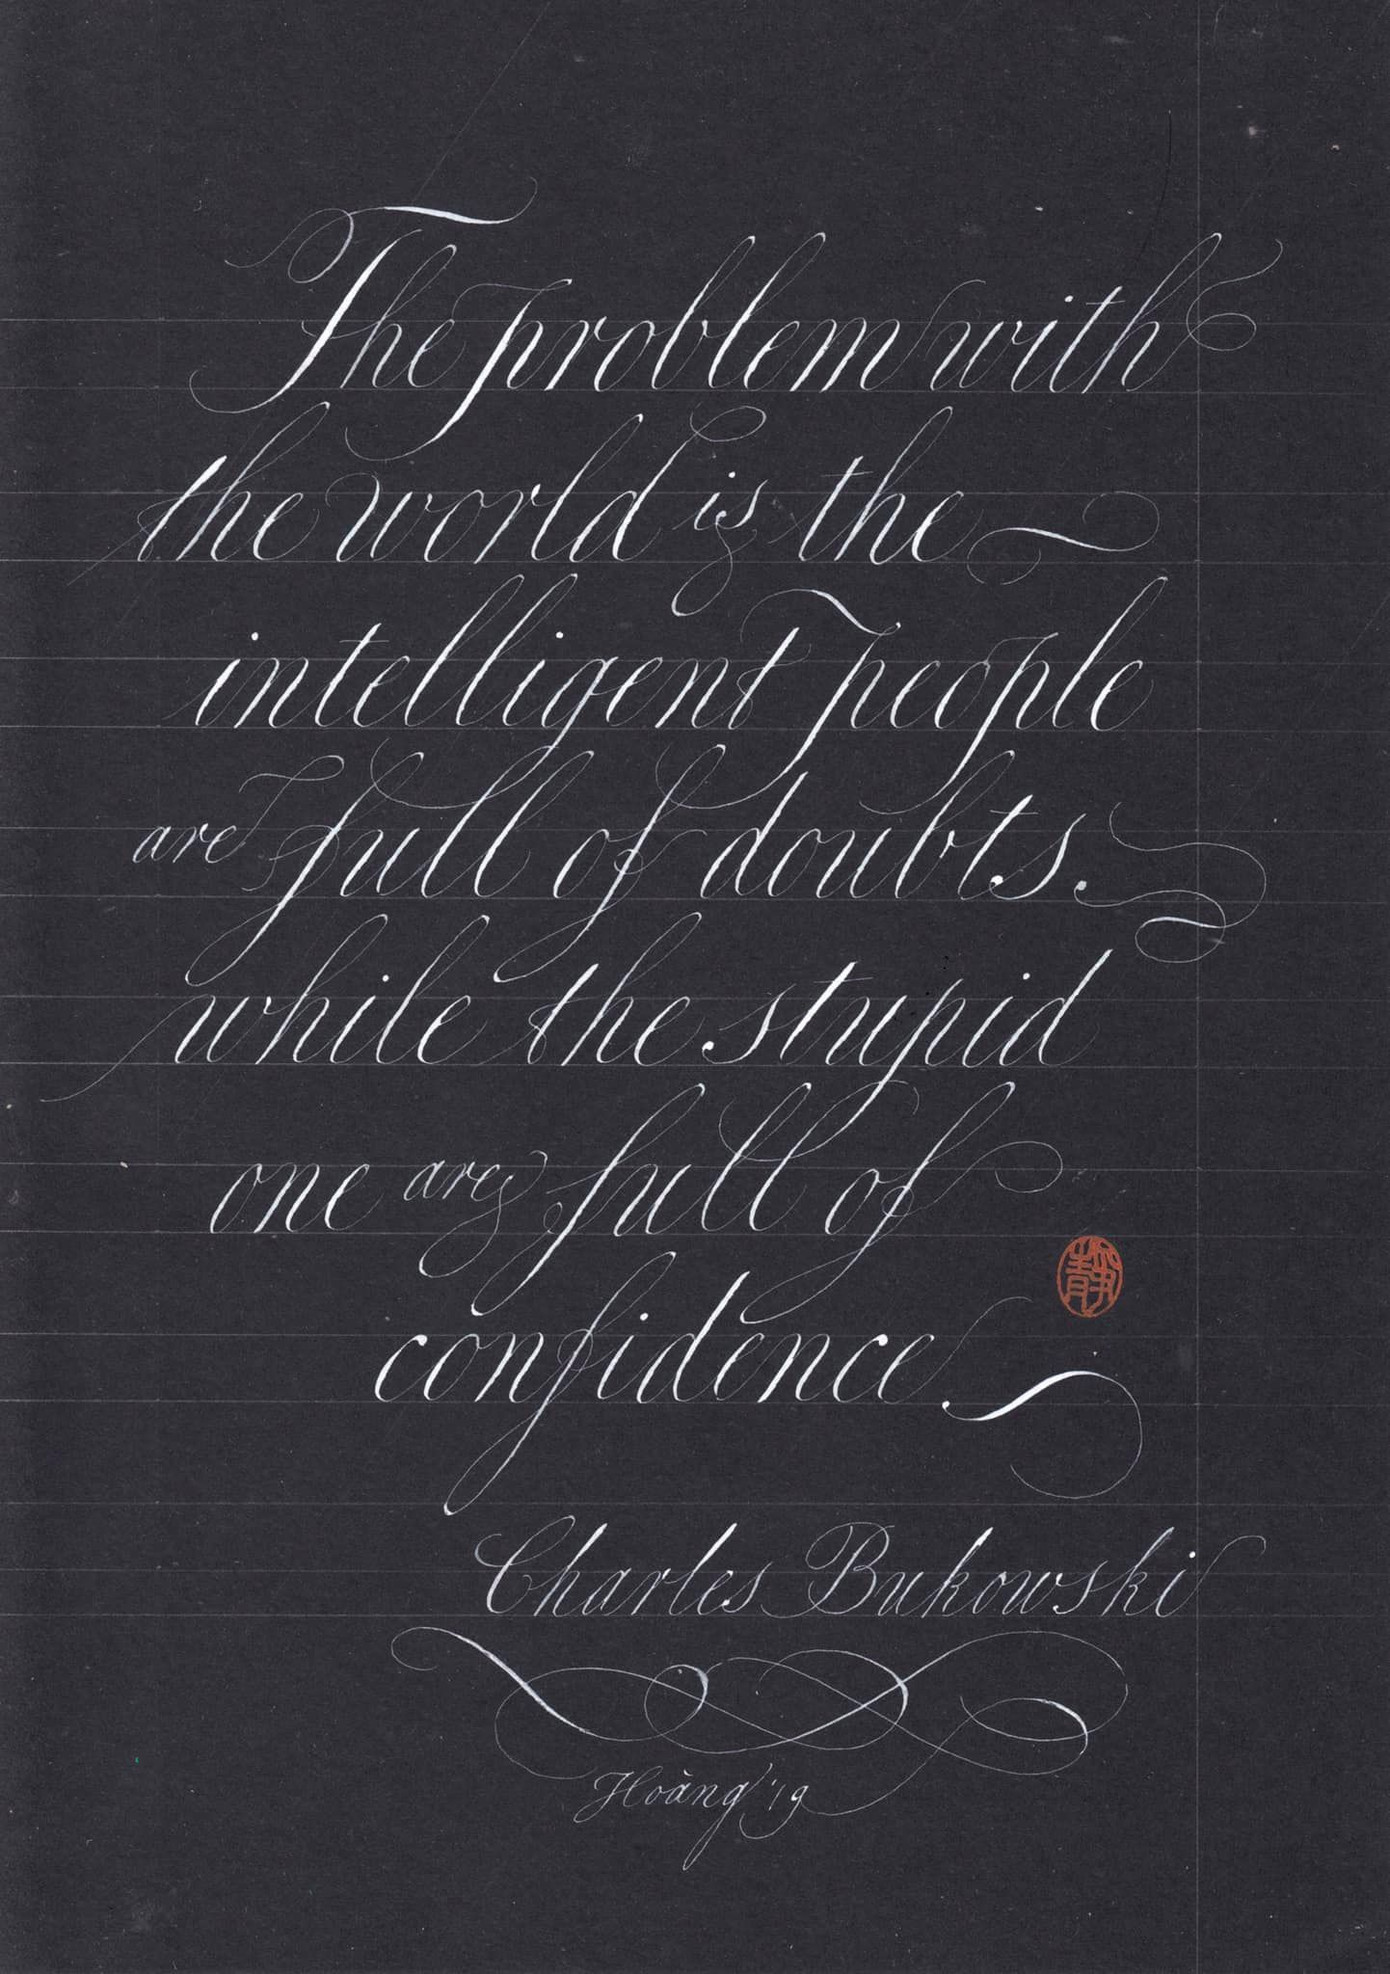 The problem with
the world is the
intelligent people
are full of doubts.
while the stupid
one are full of
靜
confidence.
Charles Bukowski
Hoàng '19